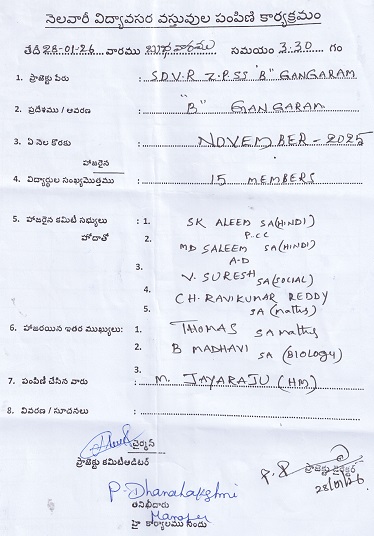 నెలవారీ విద్యావసర వస్తువుల పంపిణి కార్యక్రమం
తేదీ 28-01-26 వారము బుధవారము సమయం 3:30 గం
1. ప్రాజెక్టు పేరు : S.D.V.R Z.P.S.S "B" GANGARAM
2. ప్రదేశము / ఆవరణ : "B" GANGARAM
3. ఏ నెల కొరకు : NOVEMBER - 2025
హాజరైన
4. విద్యార్థుల సంఖ్యమొత్తము : 15 MEMBERS
5. హాజరైన కమిటి సభ్యులు : 1. SK ALEEM SA(HINDI)
హోదాతో 2. P.CC
MD SALEEM SA(HINDI)
3. A-D
V. SURESH SA(SOCIAL)
4. CH. RAVIKUMAR REDDY
5. SA (maths)
6. హాజరయిన ఇతర ముఖ్యులు: 1. THOMAS SA maths
2. B MADHAVI SA (BIOLOGY)
3.
7. పంపిణి చేసిన వారు : M. JAYARAJU (HM)
8. వివరణ / సూచనలు :
చైర్మన్
ప్రాజెక్టు కమిటిఆడిటర్
ప్రాజెక్టు డైరెక్టర్
28/01/26
P. Dhanalakshmi
తనిఖీదారు
Manager
హై కార్యాలము నందు